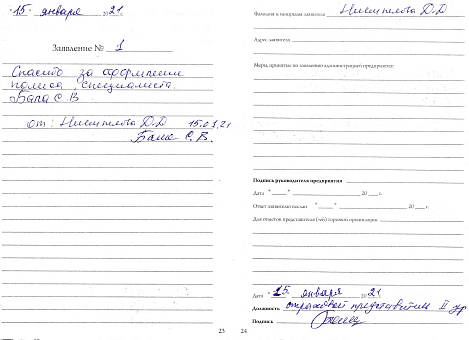 "15." января 2021 г.
Заявление № 1
Спасибо за оформление
полиса, специалиста.
Бапа С. В
от: Д.Д 15.01.21
С. В.
23
Фамилия и инициалы заявителя Д.Д
Адрес заявителя
Меры, принятые по заявлению администрацией предприятия:
Подпись руководителя предприятия
Дата "____" 20 г.
Ответ заявителю послан "____" 20 г.
Для ответов представителя (-ей) торговой организации
Дата "15" января 2021
Должность страховой представитель II ур
Подпись
24